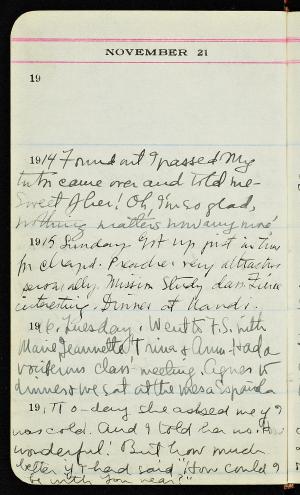 NOVEMBER 21
19
1914 Found out I passed. My
tutor came over and told me –
Sweet of her! Oh, I'm so glad,
nothing matters now any more
1915 Sunday. Got up just in time
for chapel. Preacher very attractive
personally. Mission Study class. Line
interesting. Dinner at
1916, Tuesday. Went to F.S. with
Marie Jeannette Trina & Anna. Had a
vociferous class meeting. Agnes to
dinner & we sat at the mesa Española
19, To-day she asked me if I
was cold. And I told her no. How
wonderful! But how much
better if I had said "How could I
be with you near?"